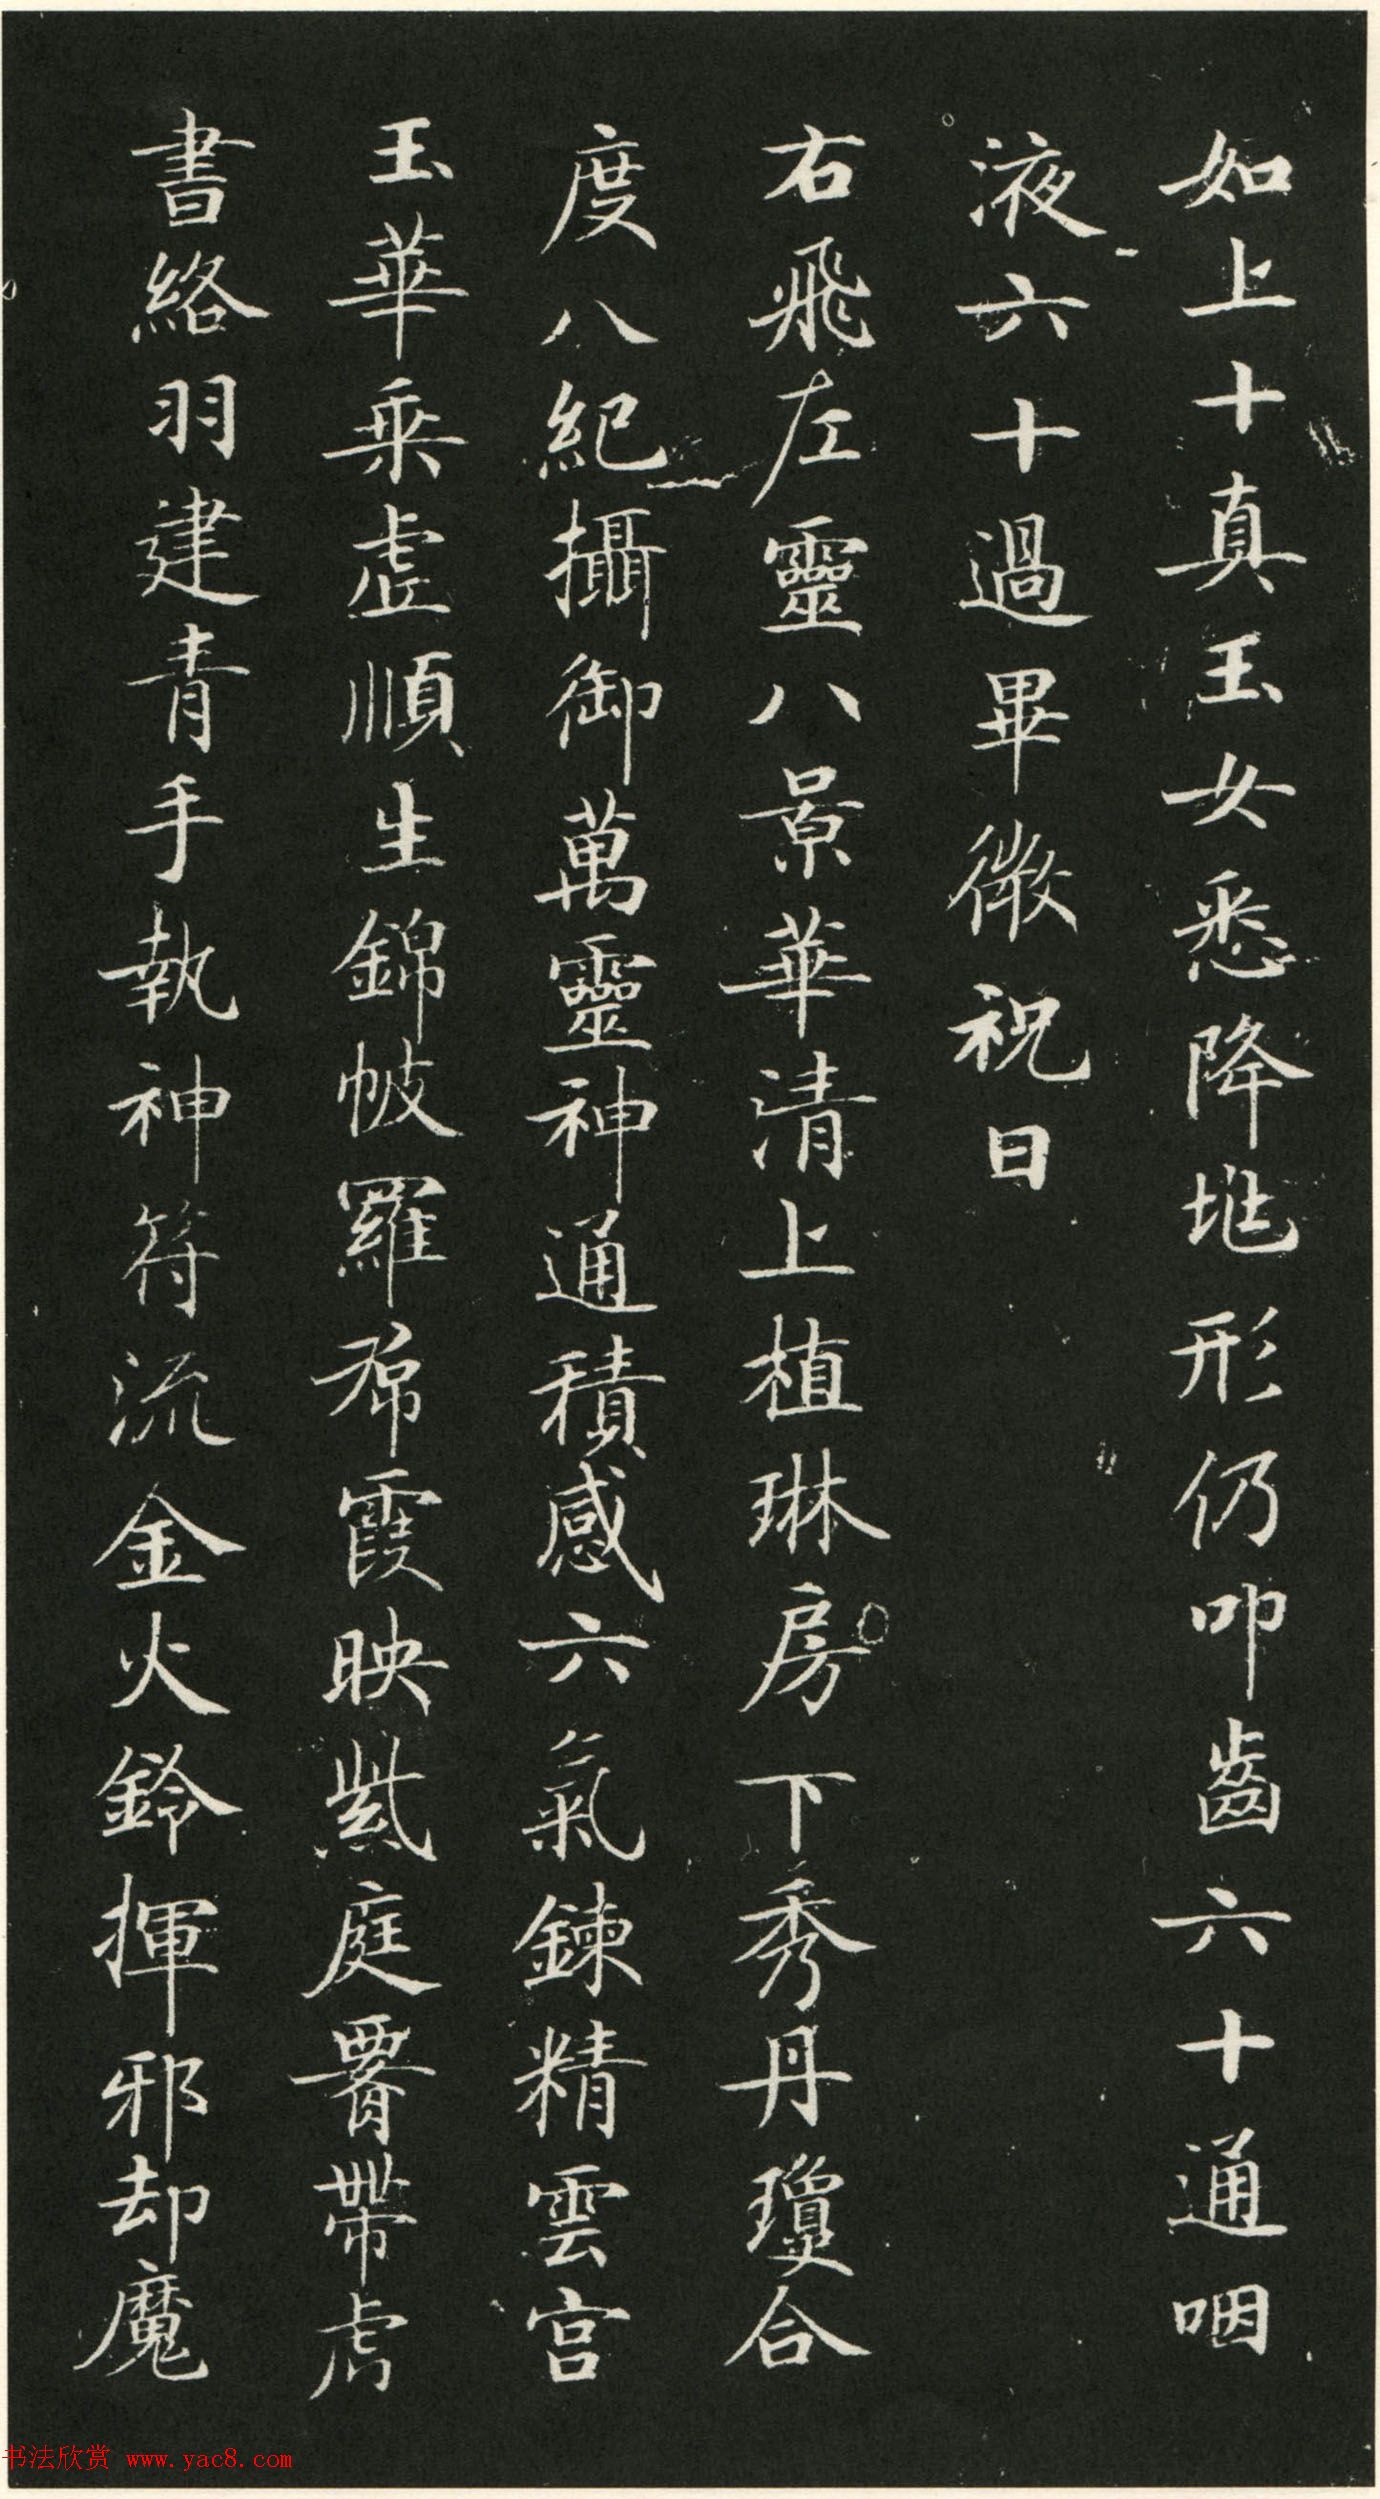 如上十真玉女悉降地形仍叩齒六十通咽
液六十過畢微祝曰
右飛左靈八景華清上植琳房下秀丹瓊合
度八紀攝御萬靈神通積感六氣鍊精雲宮
玉華乘虛順生錦帔羅帬霞映紫庭腰帶虎
書絡羽建青手執神符流金火鈴揮邪却魔
书法欣赏 www.yac8.com